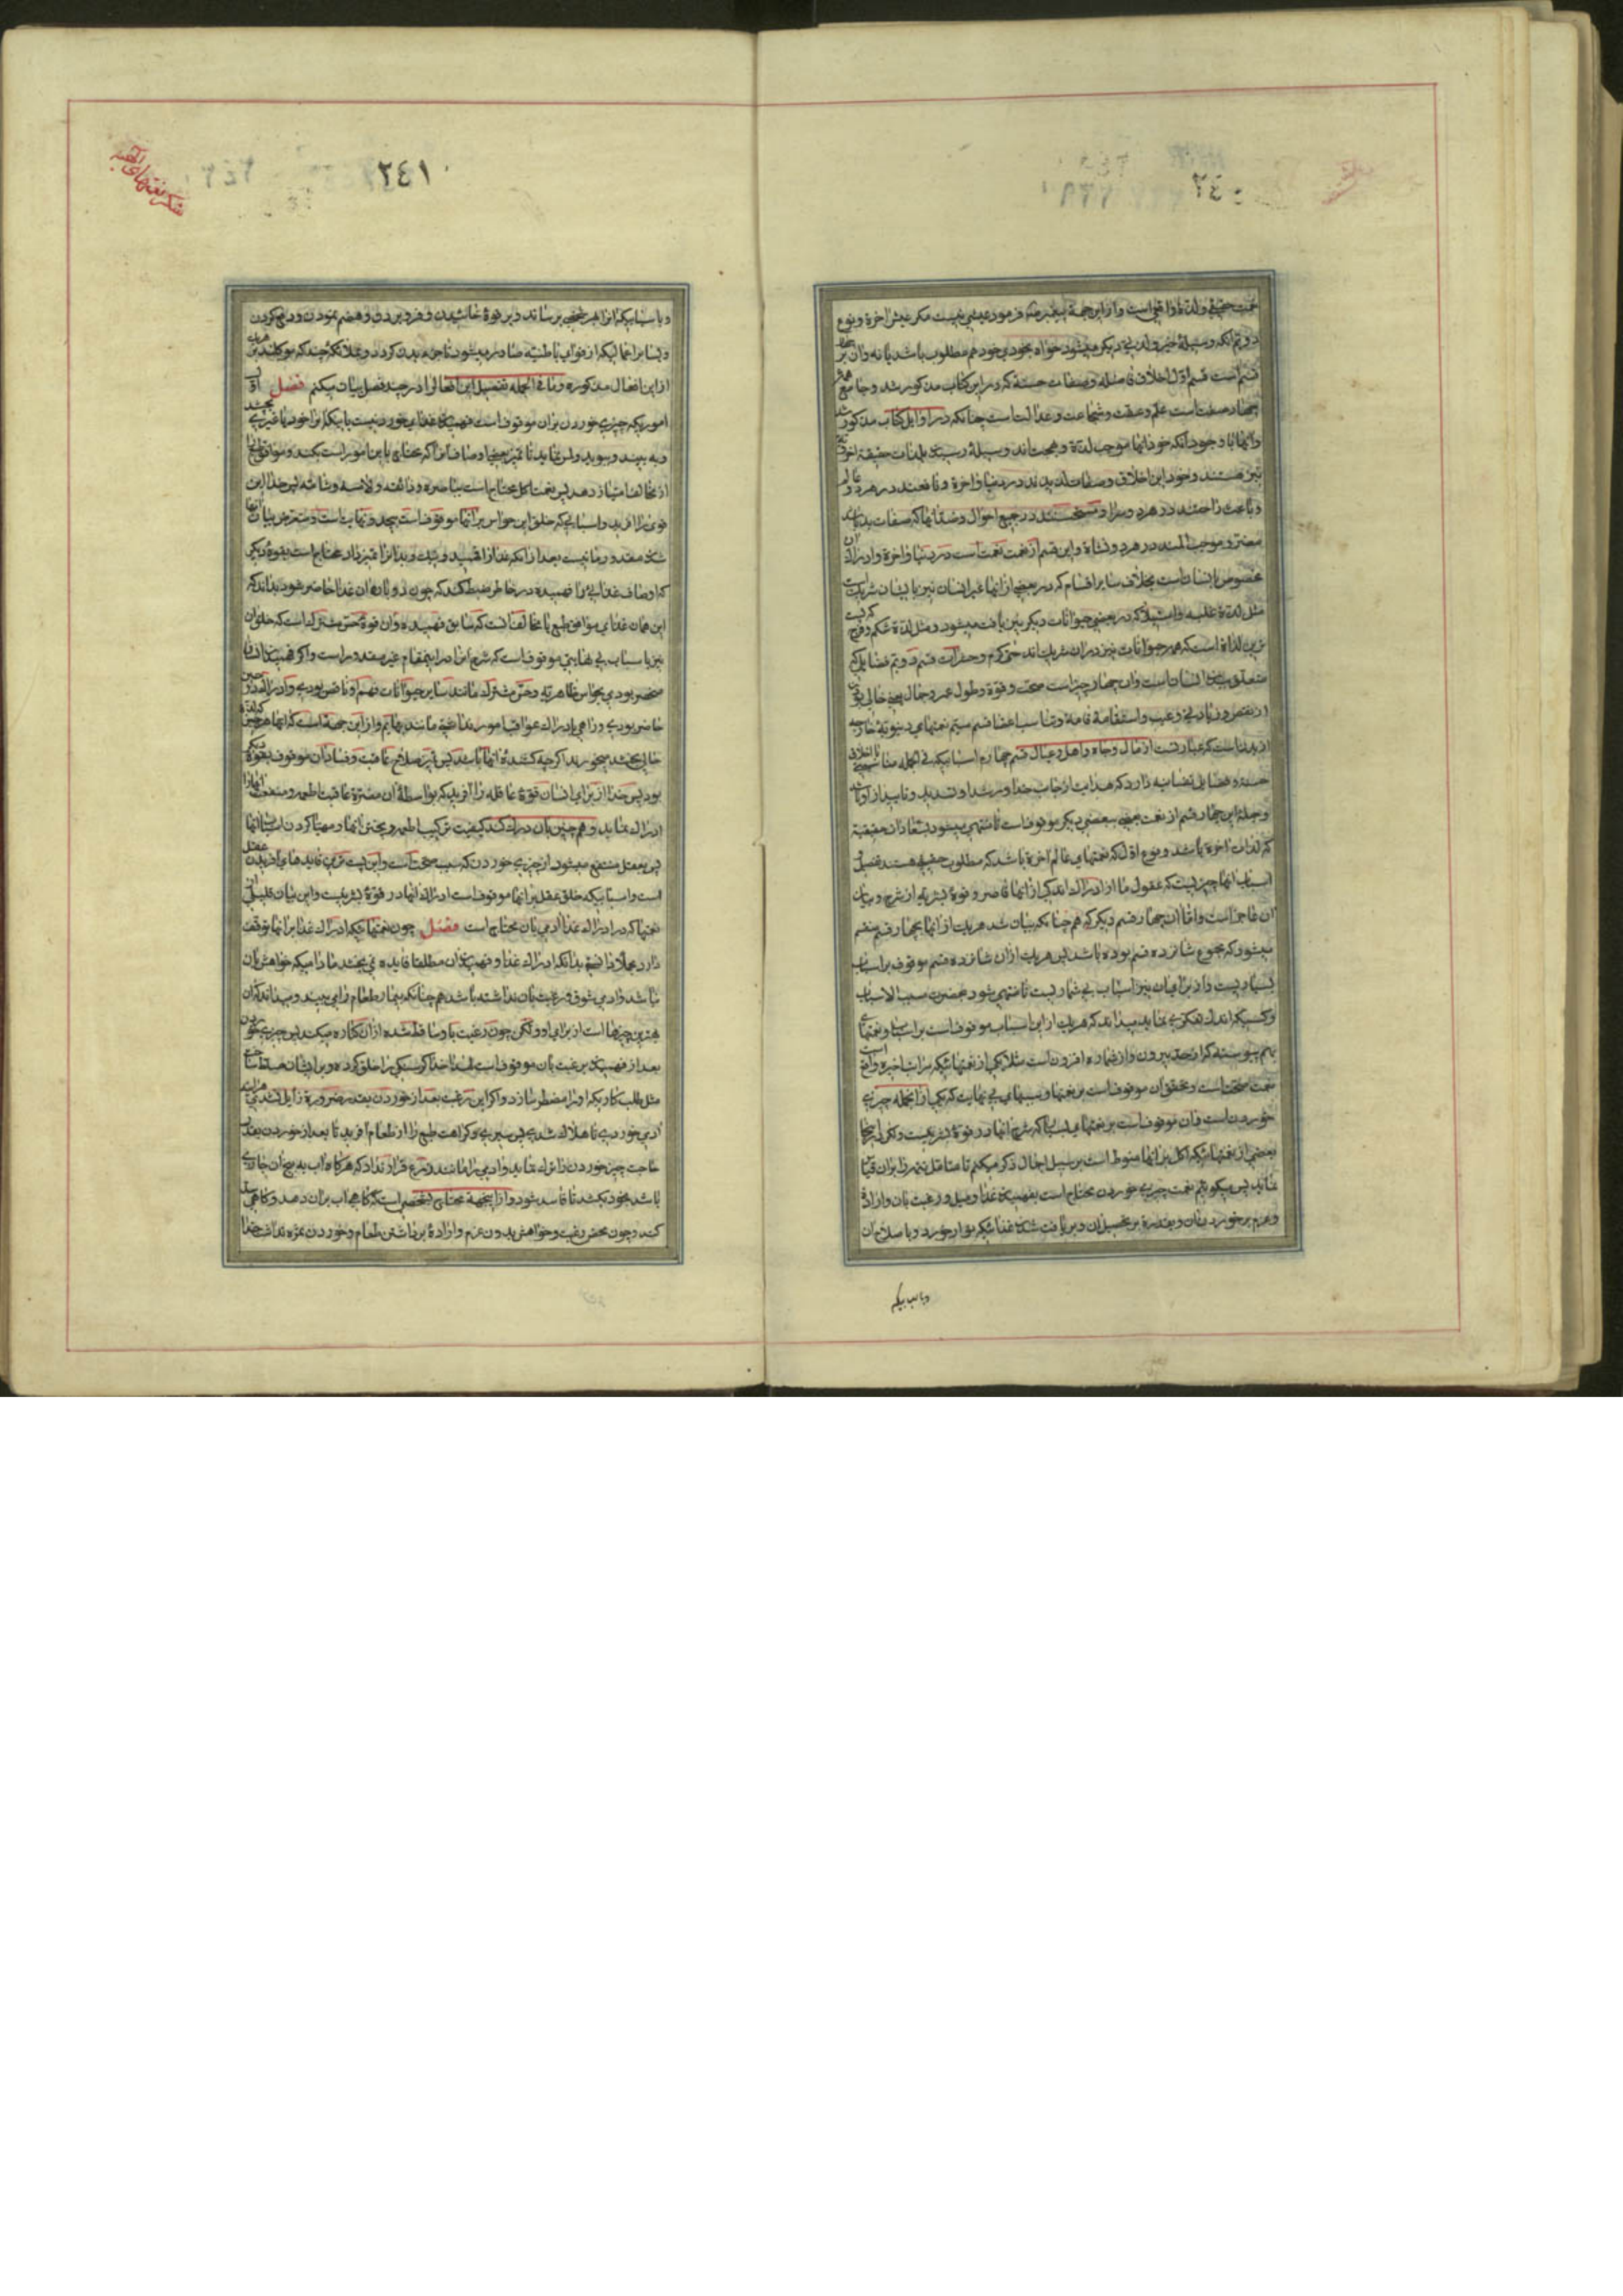 ٢٤٠
نعمت حقیقی و لذة واقعی است و از این جهة پیغمبر فرمود عیشی نیست مکر عیش اخرة و نوع
دویم انکه وسیلهٔ خیر و لذتی دیکر میشود خواه بخودی خود هم مطلوب باشد یا نه و ان بر چهار
قسم است قسم اول اخلاق فاضله و صفات حسنه که در این کتاب مذکور شد و جامع همه
چهار صفت است علم و عفت و شجاعت و عدالت است چنانکه در اوایل کتاب مذکور شد
و اینها با وجود انکه خود اینها موجب لذة و بهجت اند وسیلهٔ رسیدن بلذات حقیقیه اخرویه
نیز هستند و خود این اخلاق و صفات لذیذند در دنیا و اخرة و نافعند در هر دو عالم
و باعث راحتند در هر دو سرا و مستحسنند در جمیع احوال و ضد انها که صفات بد باشند
مضر و موجب المند در هر دو نشاة و این قسم از نعمت نعمت است در دنیا و اخرة و ادراک ان
مخصوص بانسان است بخلاف سایر اقسام که در بعضی از انها غیر انسان نیز با ایشان شریک است
مثل لذة غلبه و استیلا که در بعضی حیوانات دیکر نیز یافت میشود و مثل لذة شکم و فرج که پست
ترین لذاة است که همه حیوانات نیز در ان شریک اند حتی کرم و حشرات قسم دویم فضایلی که
متعلق ببدن انسان است و ان چهار چیز است صحت و قوة و طول عمر و جمال یعنی خالی بودن
از نقص و زیادتی و عیب و استقامة قامة و تناسب اعضا قسم سیم نعمتهای دنیویهٔ خارجه
از بدنست که عبارتست از مال و جاه و اهل و عیال قسم چهارم اسبابیکه فی الجمله مناسبتی با اخلاق
حسنه و فضایل نفسانیه دارد که هدایت از جانب خدا و رشد و تسدید و تایید از او باشد
و جملهٔ این چهار قسم از نعمت بعضی ببعضی دیکر موقوف است تا منتهی میشود بسعادات حقیقیة
که لذات اخرة باشد و نوع اول که نعمتهای عالم اخرة باشد که مطلوب حقیقی هستند تفصیل
اسباب انها چیزیست که عقول ما از ادراک اندکی از انها قاصر و قوة بشریه از شرح و بیان
ان عاجز است و اما ان چهار قسم دیکر که هم چنانکه بیان شد هر یک از انها بچهار قسم منقسم
میشود که مجموع شانزده قسم بوده باشد پس هر یک از ان شانزده قسم موقوف بر اسباب
بسیاریست و از برای ان نیز اسباب بی شماریست تا منتهی شود بحضرت مسبب الاسباب
و کسیکه اندک تفکری نماید میداند که هر یک از این اسباب موقوف است بر اسباب و نعمتهای
بهم پیوسته که از حد بیرون و از شماره افزون است مثلا یکی از نعمتهائیکه مراتب اخیره واقع است
نعمت صحت است و تحقق ان موقوف است بر نعمتها و سببهای بی نهایت که یکی از انجمله چیزی
خوردن است و ان موقوف است بر نعمتهای بسیار که شرح انها در قوة بشر نیست و لکن در اینجا
بعضی از نعمتهائیکه اکل بر انها منوط است بر سبیل اجمال ذکر میکنم تا متامل تتمه را بر ان قیاس
نماید پس میکوئیم نعمت چیزی خوردن محتاج است بفهمیدن غذا و میل و رغبت بان و ارادة
و عزم بر خوردن ان و بقدرة بر تحصیل ان و بر یافت شدن غذائیکه بتوان خورد و باصلاح ان
و باسبابیکه
شکر نعمتهای الهیه
٢٤١
و باسبابیکه انرا بهر شخصی برسانند و بر قوة خائیدن و فرو بردن و هضم نمودن و دفع کردن
و بسایر افعالیکه از قوای باطنیه صادر میشود تا جزء بدن کردد و بملائکهٔ چند که موکلند بر هر یک
از این افعال مذکوره و ما فی الجمله تفصیل این افعال را در چند فصل بیان میکنم فصل اول
اموریکه چیزی خوردن بر ان موقوف است فهمیدن غذای خوردنیست با یکدیکر از خود یا غیری بچشد
و به بیند و ببوید و لمس نماید تا تمیز بعضی اوصاف انرا که محتاج باین امور است بکند و موافق طبع را
از مخالف امتیاز دهد پس نعمت اکل محتاج است بباصره و ذائقه و لامسه و شامه پس خدا این
قوی را افرید و اسبابی که خلق این حواس بر انها موقوف است بیحد و نهایت است و متعرض بیان انها
شدن مقدور ما نیست بعد از انکه غذا را فهمید و نیک و بد انرا تمیز داد محتاج است بقوهٔ دیکر
که اوصاف غذایی را فهمیده در خاطر ضبط کند که چون دوباره ان غذا حاضر شود بداند که
این همان غذای موافق طبع یا مخالف انست که سابق فهمیده و ان قوة حس مشترک است که خلق ان
نیز باسباب بی نهایتی موقوف است که شرح انرا در اینمقام غیر مقدور است و اکر فهمیدن انسان
منحصر بودی بحواس ظاهریه و حس مشترک مانند سایر حیوانات فهم او ناقص بودی و ادراک او در حین
حاضر بودی و راهی بادراک عواقب امور نداشتی مانند بهایم و از این جهة است که انها هر چیز که لذت
حالی بخشد میخورند اکر چه کشندهٔ انها باشد پس تمیز صلاح عاقبت و فساد ان موقوف بقوهٔ دیکر
بود پس خدا از برای انسان قوة عاقله را افرید که بواسطهٔ ان مضرة عاقبت اطعمه و منفعت انها را
ادراک نماید و هم چنین بان درک کند کیفیت ترکیب اطعمه و پختن انها و مهیا کردن اسباب انها
پس بعقل منتفع میشود از چیزی خوردن که سبب صحت است و این پست ترین فایدهای افریدن عقل
است و اسبابیکه خلق عقل بر انها موقوف است ادراک انها در قوة بشر نیست و این بیان قلیلی از
نعمتها که در ادراک غذا ادمی بان محتاج است فصل چون نعمتهائیکه ادراک غذا بر انها توقف
دارد مجملا دانستی بدانکه ادراک غذا و فهمیدن ان مطلقا فایده نمی بخشد مادامیکه خواهش بان
نباشد و ادمی شوق و رغبت بان نداشته باشد هم چنانکه بیمار طعام را می بیند و میداند که ان
بهترین چیزها است از برای او و لکن چون رغبت باو ساقط شده از ان کناره میکند پس چیزی خوردن
بعد از فهمیدن بر رغبت بان موقوف است لهذا خدا کرسنکی را خلق کرده و بر انسان مسلط ساخته
مثل طلب کاریکه او را مضطر سازد و اکر این رغبت بعد از خوردن بقدر ضرورة زایل نشدی هر اینه
ادمی خوردی تا هلاک شدی پس سیری و کراهت طبع را از طعام افرید تا بعد از خوردن بقدر
حاجت چیز خوردن را ترک نماید و ادمی را مانند زرع قرار نداد که هر کاه اب به بیخ ان جاری
باشد بخود بکشد تا فاسد شود و از اینجهة محتاج بشخصی است که کاهی اب بران دهد و کاهی سد
کند و چون محض رغبت و خواهش بدون عزم و ارادهٔ برداشتن طعام و خوردن ثمره نداشت خدا